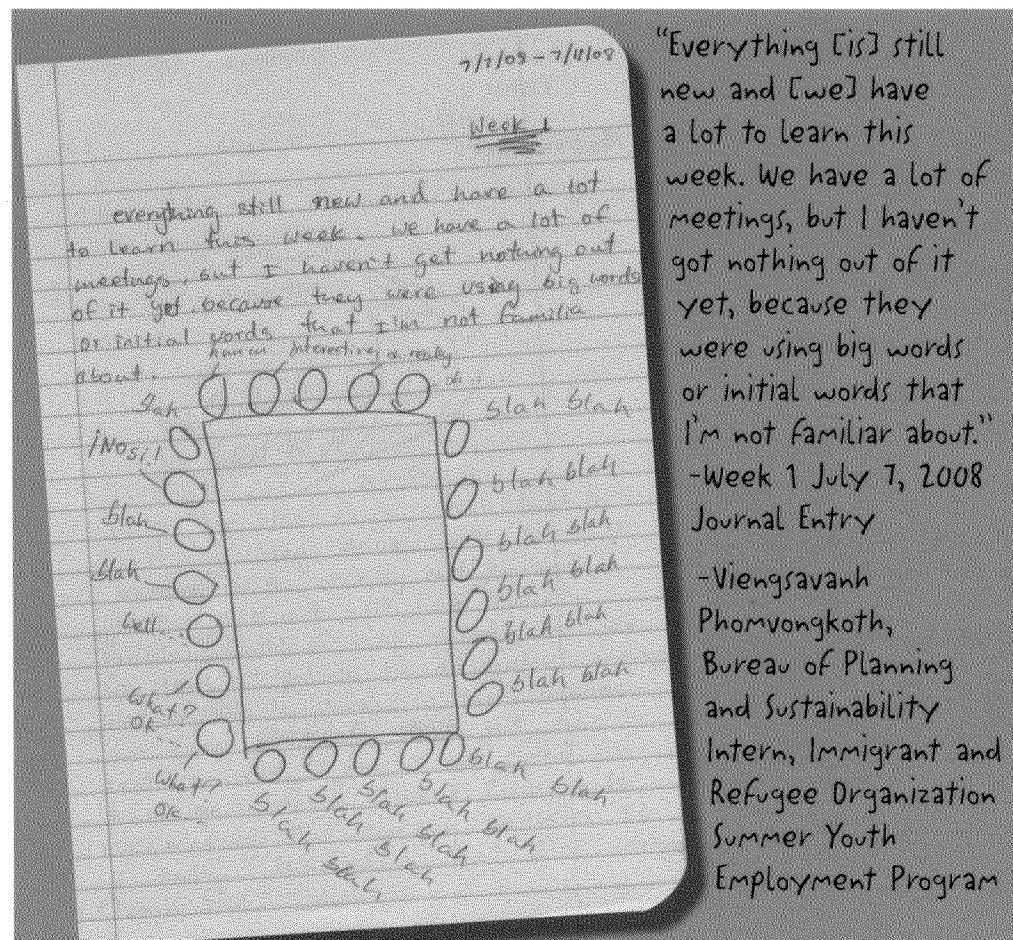 7/7/08 - 7/11/08
Week 1
everything still new and have a lot
to learn this week. we have a lot of
meetings, but I haven't get nothing out
of it yet because they were using big words
or initial words that I'm not familia
about.
interesting
really
blah blah
blah blah
blah
blah blah
blah
blah blah
blah blah
blah blah
What?
OK
What?
OK
blah blah
blah blah
blah blah
blah blah
blah blah
"Everything [is] still
new and [we] have
a lot to learn this
week. We have a lot of
meetings, but I haven't
got nothing out of it
yet, because they
were using big words
or initial words that
I'm not familiar about."
-Week 1 July 7, 2008
Journal Entry
-Viengsavanh
Phomvongkoth,
Bureau of Planning
and Sustainability
Intern, Immigrant and
Refugee Organization
Summer Youth
Employment Program